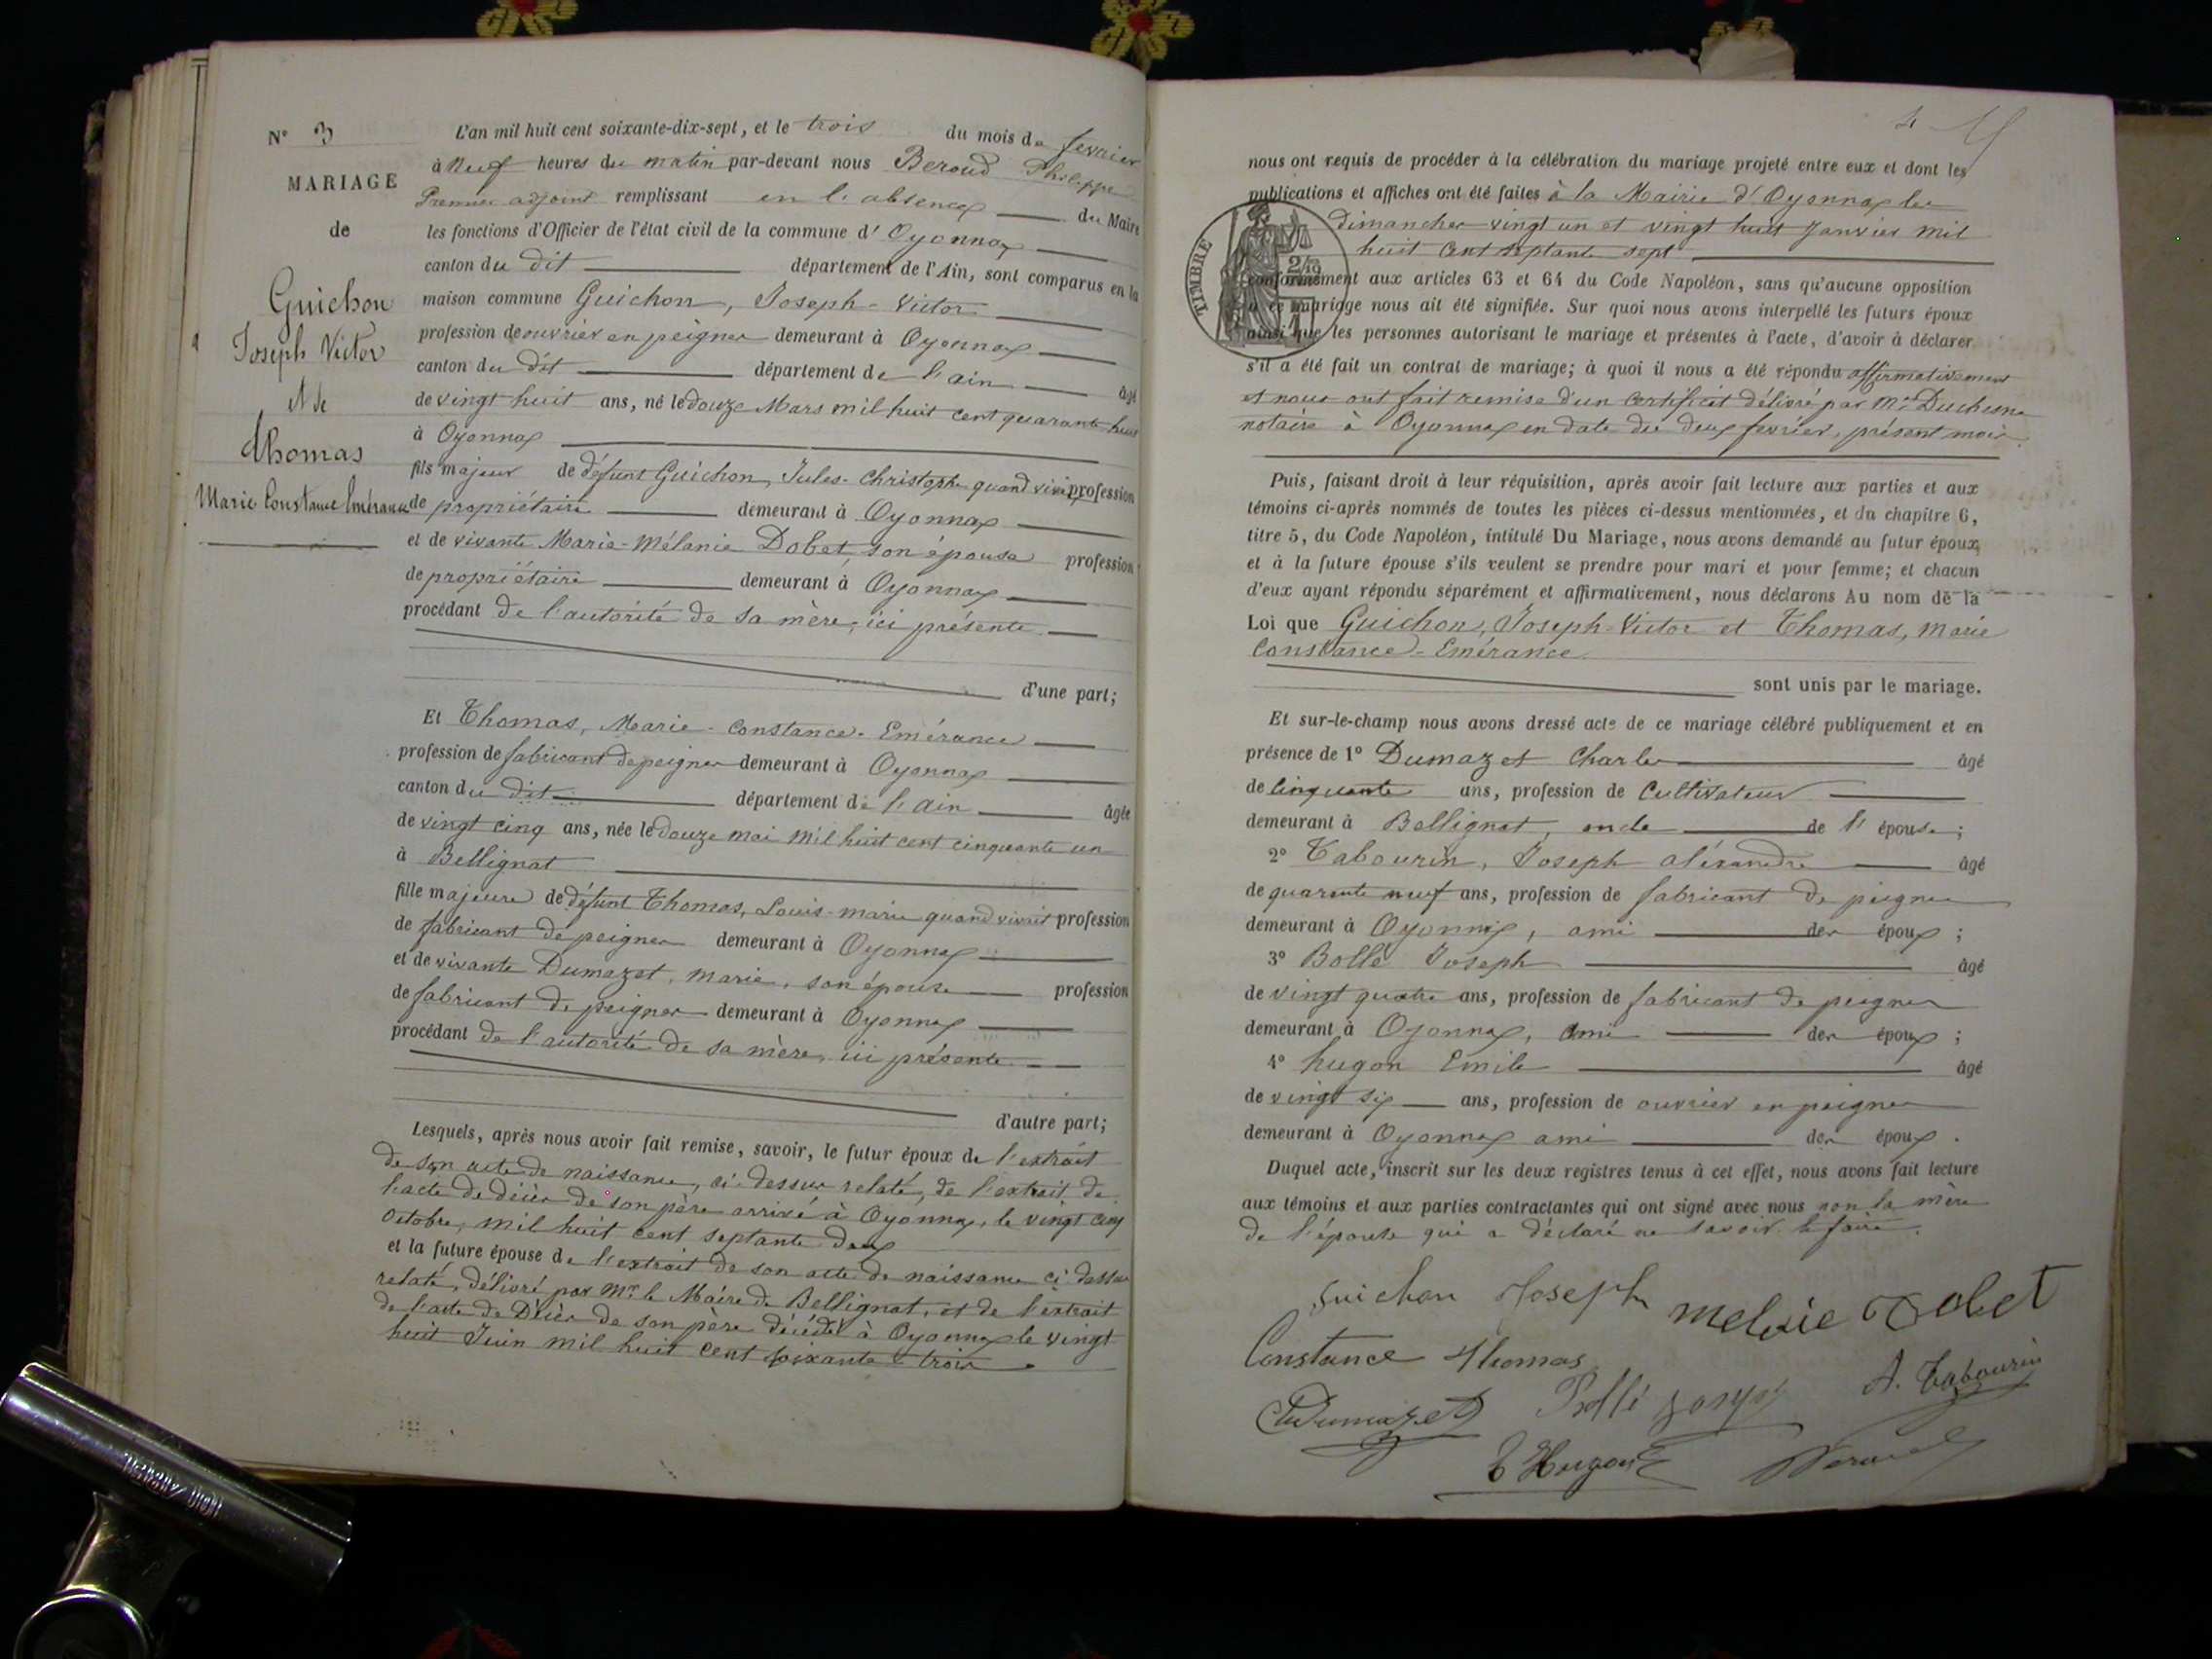 N° 3
MARIAGE
de
Guichon
Joseph Victor
et de
Thomas
Marie Constance Emérance
L'an mil huit cent soixante-dix-sept, et le trois du mois de fevrier
à Neuf heures du matin par-devant nous Beroud Philippe
Premier adjoint remplissant en l'absence du Maire
les fonctions d'Officier de l'état civil de la commune d'Oyonnax
canton du dit département de l'Ain, sont comparus en la
maison commune Guichon, Joseph-Victor
profession de ouvrier en peignes demeurant à Oyonnax
canton du dit département de l'ain âgé
de vingt huit ans, né le douze Mars mil huit cent quarante huit
à Oyonnax
fils majeur de défunt Guichon, Jules-Christophe quand vivait profession
de propriétaire demeurant à Oyonnax
et de vivante Marie-Mélanie Dobet, son épouse profession
de propriétaire demeurant à Oyonnax
procédant de l'autorité de sa mère, ici présente.
d'une part;
Et Thomas, Marie-Constance-Emérance
profession de fabricant de peignes demeurant à Oyonnax
canton du dit département de l'ain âgée
de vingt cinq ans, née le douze mai mil huit cent cinquante un
à Bellignat
fille majeure de défunt Thomas, Louis-marie quand vivait profession
de fabricant de peignes demeurant à Oyonnax
et de vivante Dumazet, marie, son épouse profession
de fabricant de peignes demeurant à Oyonnax
procédant de l'autorité de sa mère, ici présente.
d'autre part;
Lesquels, après nous avoir fait remise, savoir, le futur époux de l'extrait
de son acte de naissance, ci-dessus relaté, de l'extrait de
l'acte de décès de son père arrivé à Oyonnax, le vingt cinq
Octobre, mil huit cent septante deux
et la future épouse de l'extrait de son acte de naissance ci dessus
relaté, délivré par Mr le Maire de Bellignat, et de l'extrait
de l'acte de Décès de son père décédé à Oyonnax le vingt
huit Juin mil huit cent soixante trois.
4
nous ont requis de procéder à la célébration du mariage projeté entre eux et dont les
publications et affiches ont été faites à la Mairie d'Oyonnax les
dimanches vingt un et vingt huit Janvier mil
huit cent septante sept
TIMBRE
2/10
conformément aux articles 63 et 64 du Code Napoléon, sans qu'aucune opposition
à ce mariage nous ait été signifiée. Sur quoi nous avons interpellé les futurs époux
ainsi que les personnes autorisant le mariage et présentes à l'acte, d'avoir à déclarer
s'il a été fait un contrat de mariage; à quoi il nous a été répondu affirmativement
et nous ont fait remise d'un certificat délivré par Mr Duchesne
notaire à Oyonnax en date du deux fevrier, présent mois.
Puis, faisant droit à leur réquisition, après avoir fait lecture aux parties et aux
témoins ci-après nommés de toutes les pièces ci-dessus mentionnées, et du chapitre 6,
titre 5, du Code Napoléon, intitulé Du Mariage, nous avons demandé au futur époux,
et à la future épouse s'ils veulent se prendre pour mari et pour femme; et chacun
d'eux ayant répondu séparément et affirmativement, nous déclarons Au nom de la
Loi que Guichon, Joseph-Victor et Thomas, Marie
Constance-Emérance.
sont unis par le mariage.
Et sur-le-champ nous avons dressé acte de ce mariage célébré publiquement et en
présence de 1° Dumazet Charles âgé
de cinquante ans, profession de Cultivateur
demeurant à Bellignat, oncle de l'épouse;
2° Tabourin, Joseph aléxandre âgé
de quarante neuf ans, profession de fabricant de peignes
demeurant à Oyonnax, ami des époux;
3° Bollé Joseph âgé
de vingt quatre ans, profession de fabricant de peignes
demeurant à Oyonnax, ami des époux;
4° hugon Emile âgé
de vingt six ans, profession de ouvrier en peignes
demeurant à Oyonnax ami des époux.
Duquel acte, inscrit sur les deux registres tenus à cet effet, nous avons fait lecture
aux témoins et aux parties contractantes qui ont signé avec nous non la mère
de l'épouse qui a déclaré ne savoir le faire.
Guichon Joseph melanie Dobet
Constance Thomas
Ch Dumazet Bollé Joseph A. Tabourin
E Hugon Beroud